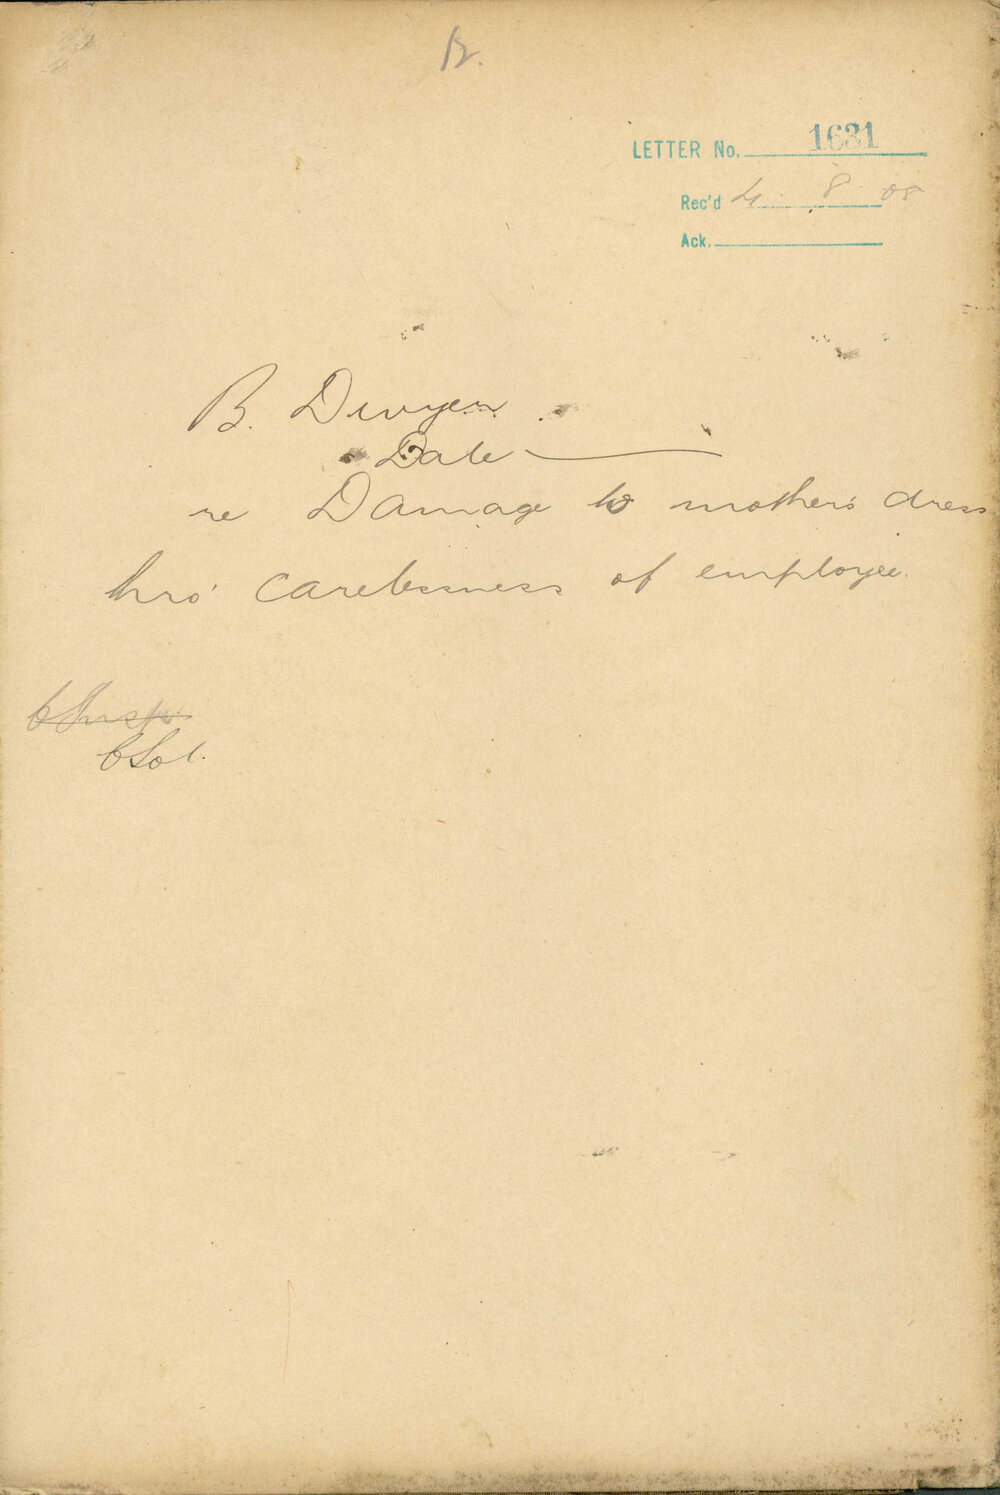 12.
LETTER No. 1631
Rec'd 4. 8. 08
Ack.
B. Dwyer
Date
re Damage to mother's dress
thro' carelessness of employee.
C Insp
C Sol.